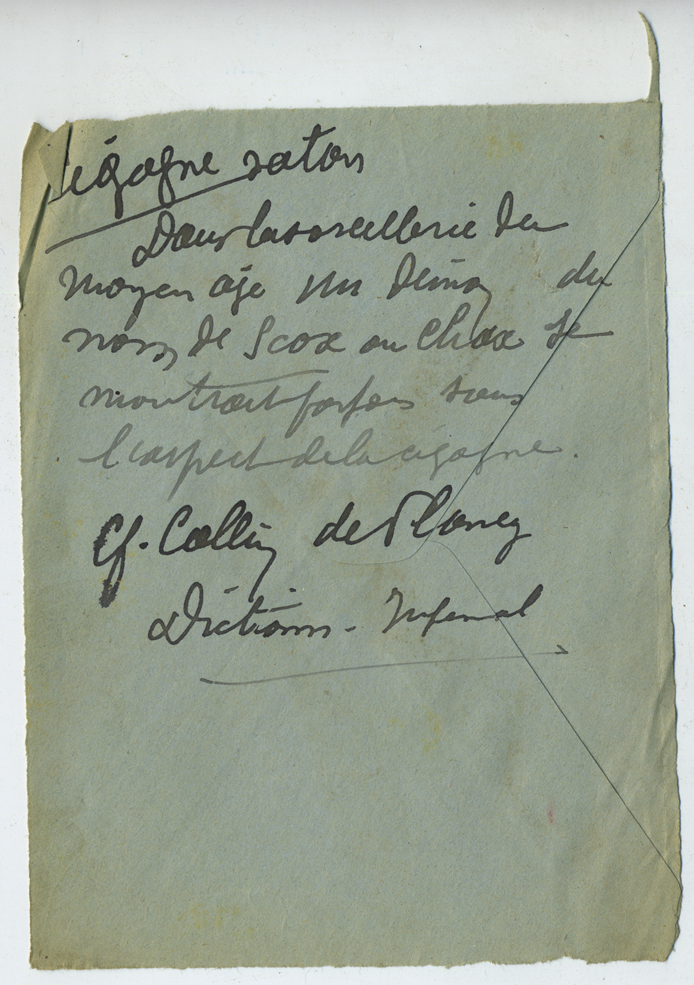 Cigogne satan
Dans la sorcellerie du
moyen age un démon du
nom de Scox ou Chax se
montrait parfois sous
l'aspect de la cigogne.
Cf. Collin de Plancy
Diction. Infernal